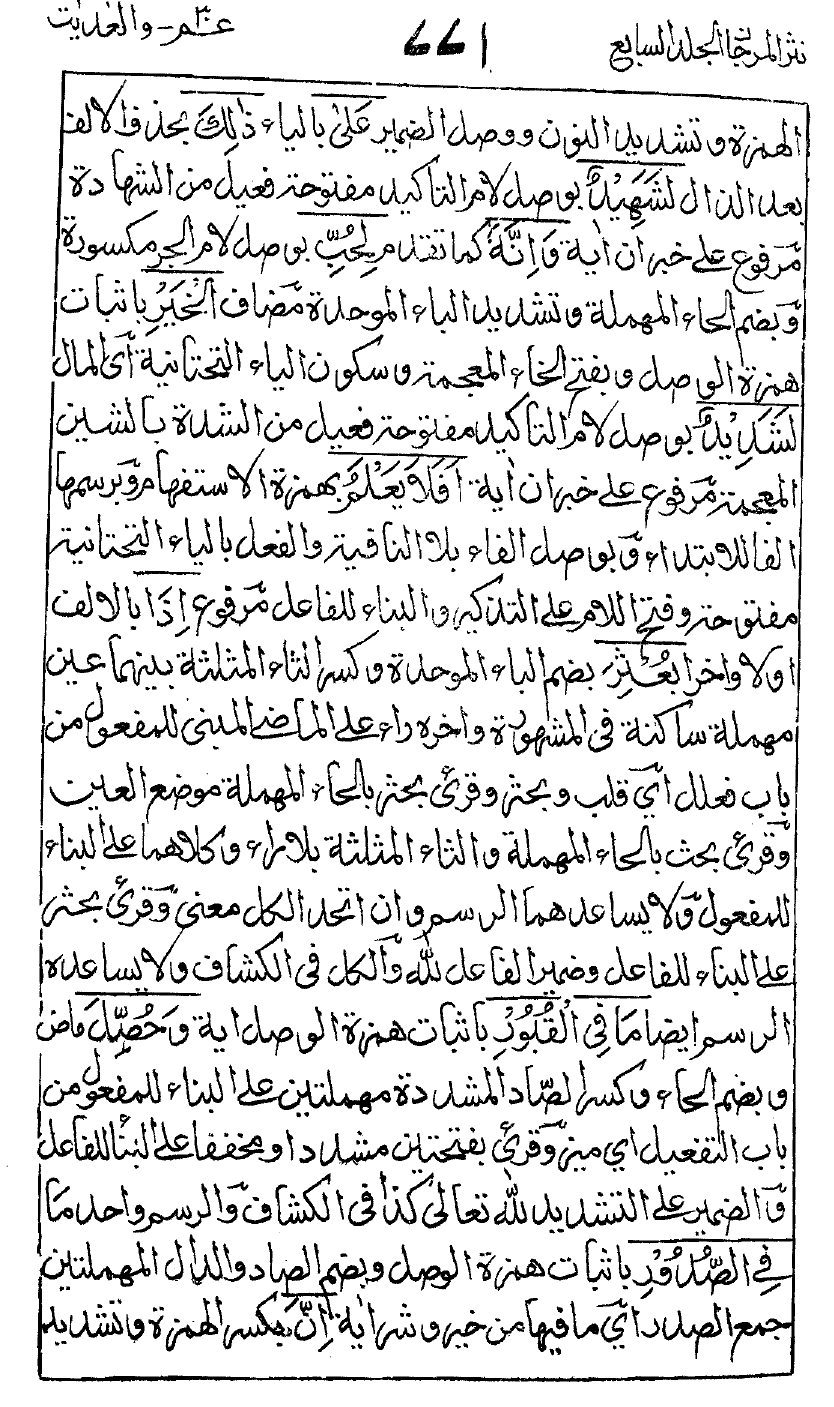 نثر المرجان الجلد السابع ٧٧١ عم۳۰ - والعٰديٰت
الهمزة وتشديد النون ووصل الضمير عَلىٰ بالياء ذٰلِكَ بحذف الالف
بعد الذال لَشَهِيْدٌ بوصل لام التاكيد مفتوحة فعيل من الشهادة
مرفوع على خبر ان اية وَاِنَّهٗ كما تقدم لِحُبِّ بوصل لام الجر مكسورة
وبضم الحاء المهملة وتشديد الباء الموحدة مضاف الْخَيْرِ باثبات
همزة الوصل وبفتح الخاء المعجمة وسكون الياء التحتانية اى المال
لَشَدِيْدٌ بوصل لام التاكيد مفتوحة فعيل من الشدة بالشين
المعجمة مرفوع على خبر ان اية اَفَلَا يَعْلَمُ بهمزة الاستفهام وبرسمها
الفا للابتداء وبوصل الفاء بلا النافية والفعل بالياء التحتانية
مفتوحة وفتح اللام على التذكير والبناء للفاعل مرفوع اِذَا بالالف
اولا واخرا بُعْثِرَ بضم الباء الموحدة وكسر الثاء المثلثة بينهما عين
مهملة ساكنة فى المشهورة واخره راء على الماضى المبنى للمفعول من
باب فعلل اى قلب وبحثر وقرئ بحثر بالحاء المهملة موضع العين
وقرئ بحث بالحاء المهملة والثاء المثلثة بلا راء وكلاهما على البناء
للمفعول ولا يساعدهما الرسم وان اتحد الكل معنى وقرئ بحثر
على البناء للفاعل وضمير الفاعل لله والكل فى الكشاف ولا يساعده
الرسم ايضا مَا فِى الْقُبُوْرِ باثبات همزة الوصل اية وَحُصِّلَ ماض
وبضم الحاء وكسر الصاد المشددة مهملتين على البناء للمفعول من
باب التفعيل اى ميز وقرئ بفتحتين مشددا ومخففا على البناء للفاعل
والضمير على التشديد لله تعالى كذا فى الكشاف والرسم واحد مَا
فِى الصُّدُوْرِ باثبات همزة الوصل وبضم الصاد والدال المهملتين
جمع الصدر اى ما فيها من خير وشر اية اِنَّ بكسر الهمزة وتشديد